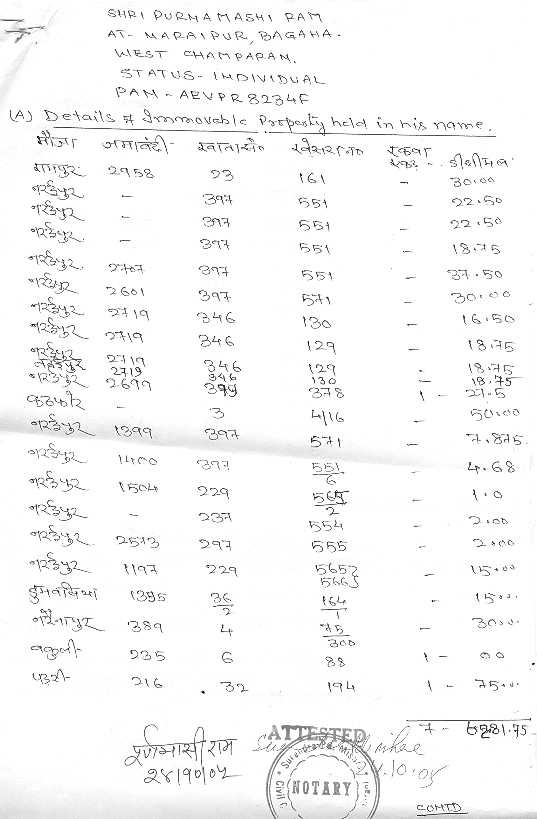 SHRI PURNAMASHI RAM
AT- NARAIPUR, BAGAHA.
WEST CHAMPARAN.
STATUS- INDIVIDUAL
PAN- AEVPR8234F
(A) Details of Immovable Property held in his name.
मौजा जमाबंदी- खाता सं० खेसरा न० रकवा एकड़ - डीसीमल
रामपुर 2958 23 161 - 30.00
नरईपुर - 397 551 - 22.50
नरईपुर - 397 551 - 22.50
नरईपुर - 397 551 - 18.75
नरईपुर 2707 397 551 - 37.50
नरईपुर 2601 397 571 - 30.00
नरईपुर 2719 346 130 - 16.50
नरईपुर 2719 346 129 - 18.75
नरईपुर 2719 346 129 - 18.75
नरईपुर 2719 346 130 - 18.75
नरईपुर 2699 399 378 1 - 27.5
- 3 4/16 - 50.00
नरईपुर 1399 397 571 - 7.875
नरईपुर 1400 397 551/6 - 4.68
नरईपुर 1504 229 565/2 - 1.0
नरईपुर - 237 554 - 2.00
नरईपुर 2513 297 555 - 2.00
नरईपुर 1197 229 5652 5665 - 15.00
डुमवलिया 1395 36/2 164/1 - 15.00
नरैनापुर 389 4 75/300 - 30.00
बकुली- 235 6 88 1 - 00
216 32 194 1 - 75.00
7 - 81.75
ATTESTED
पूर्णमासी राम
२४/१०/०५
NOTARY
CONTD